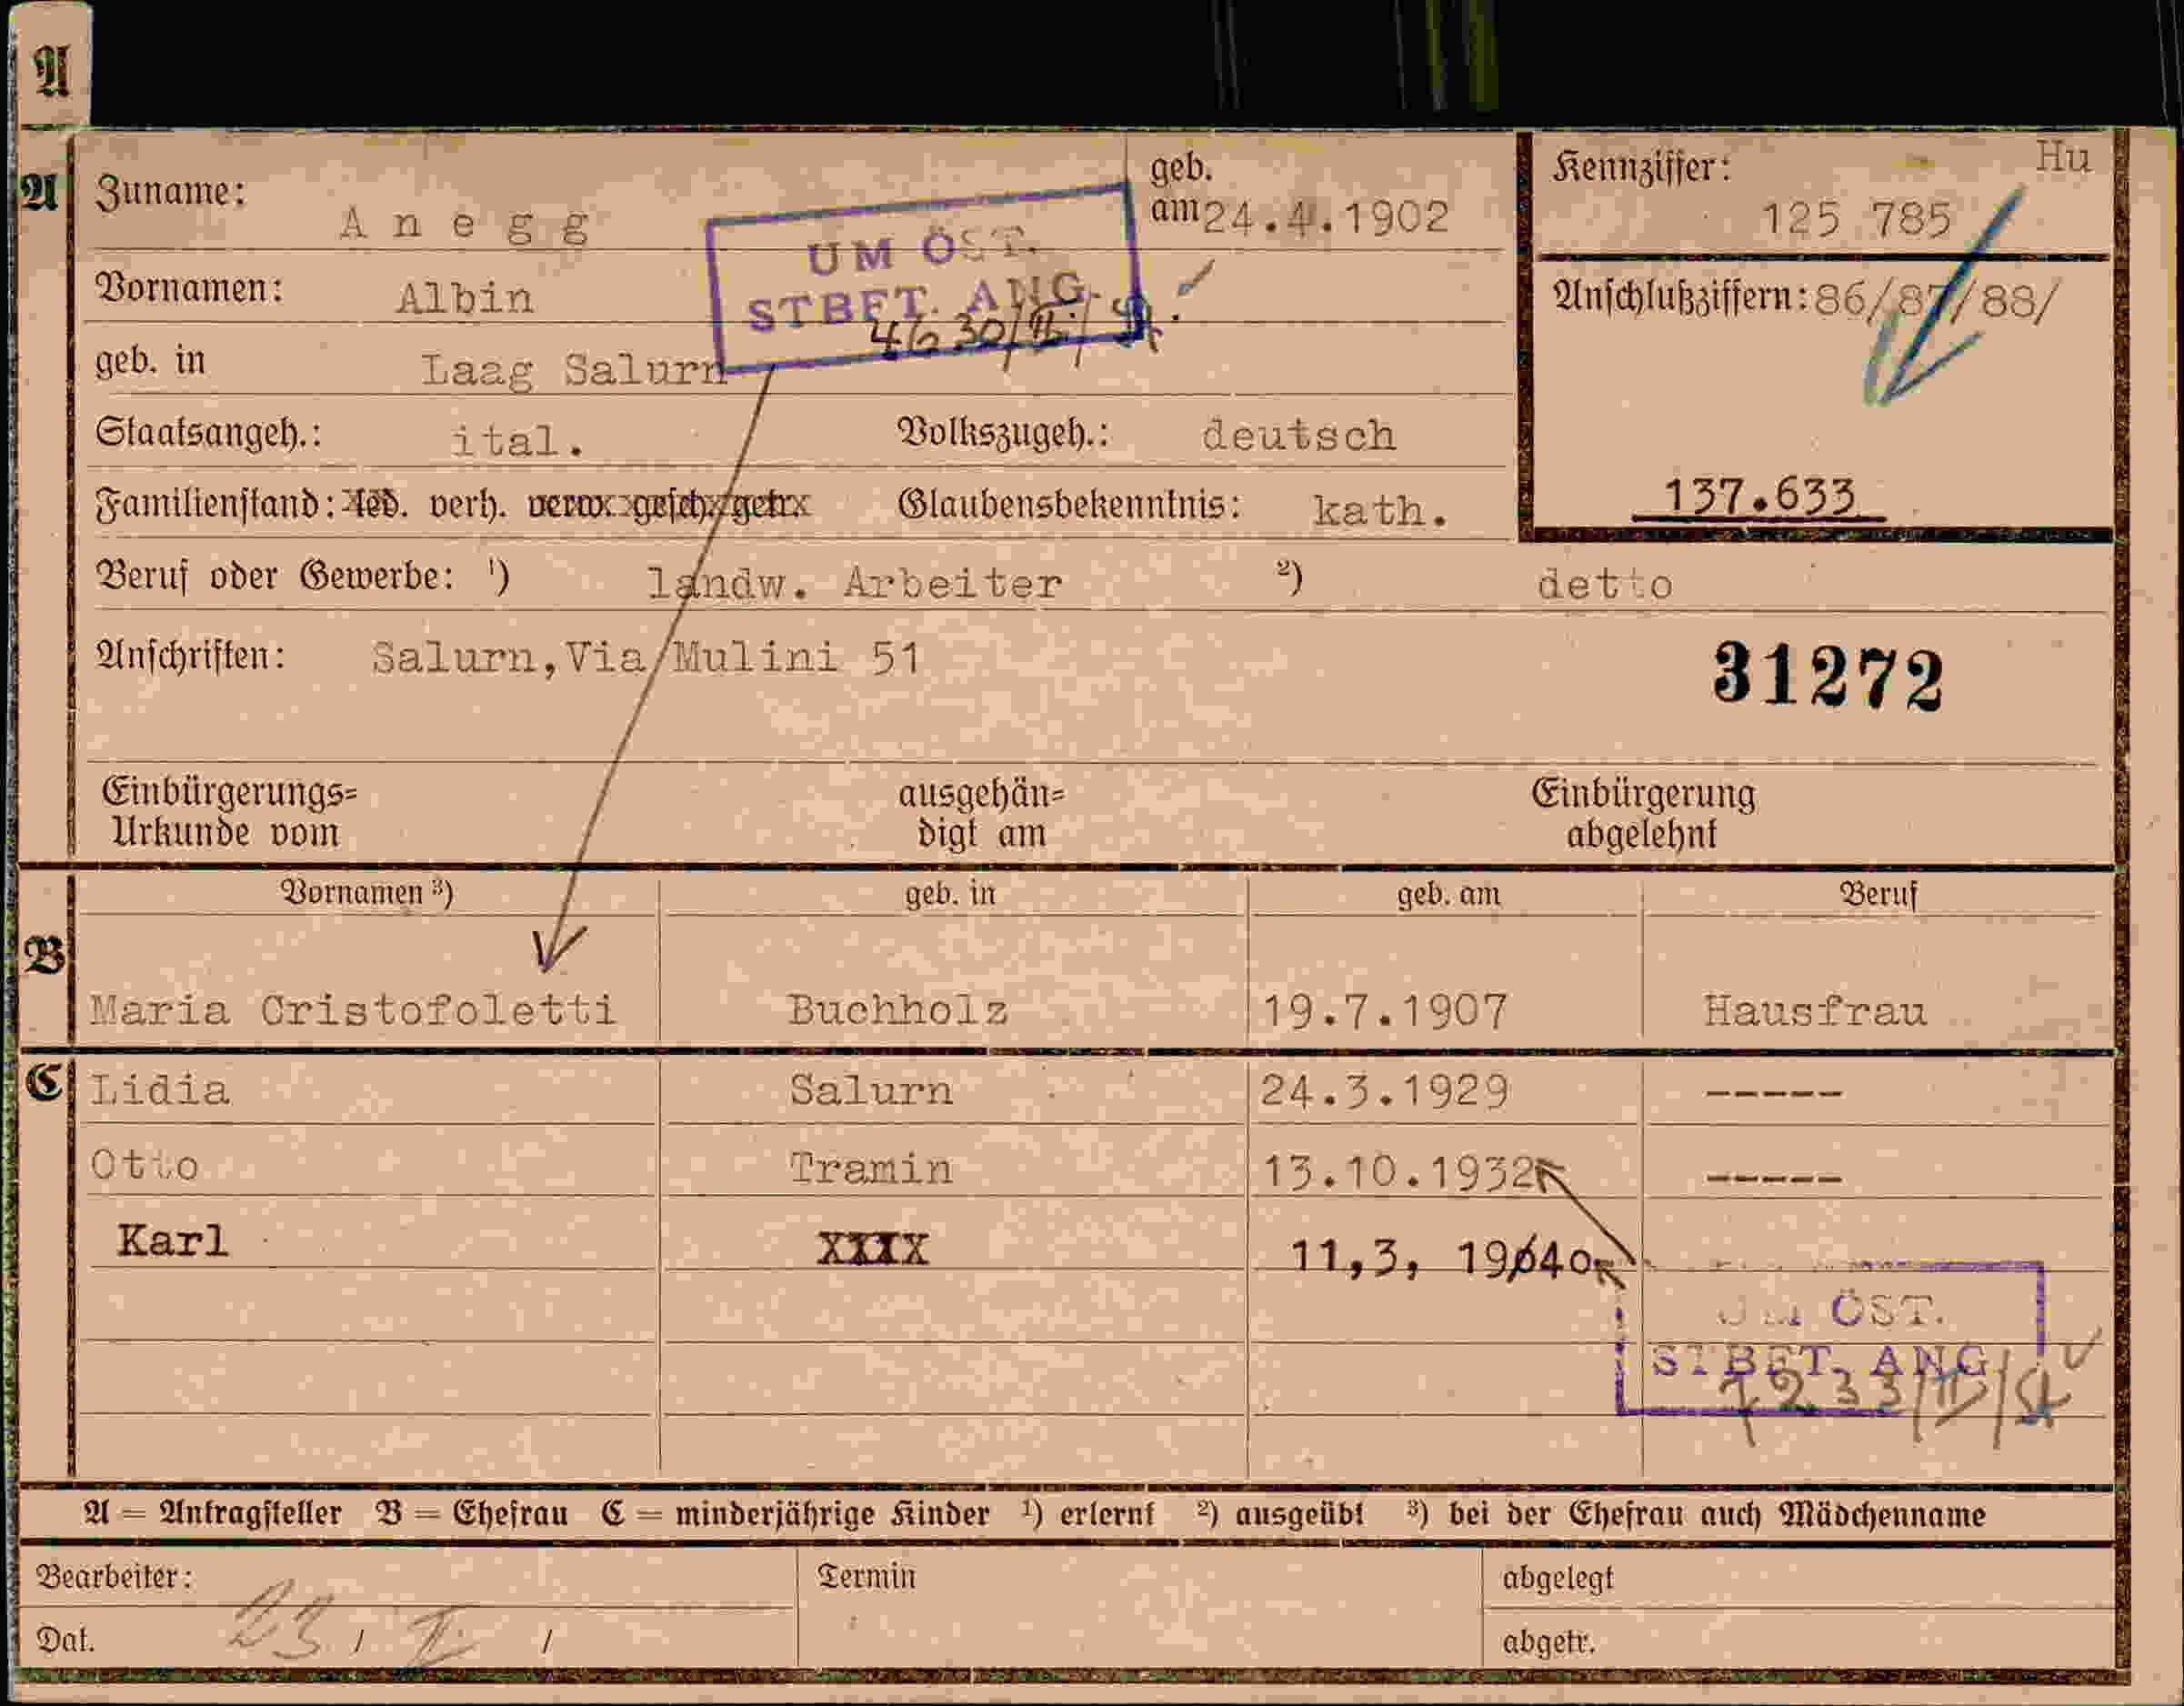 A
A
Zuname: Anegg
geb. am 24.4.1902
Kennziffer: Hu
125 785
UM ÖST.
STBET. ANG.
Vornamen: Albin
Anschlußziffern: 86/87/88/
geb. in Laag Salurn
Staatsangeh.: ital. Volkszugeh.: deutsch
137.633
Familienstand: led. verh. verw. gesch. getr. Glaubensbekenntnis: kath.
Beruf oder Gewerbe: 1) landw. Arbeiter 2) detto
Anschriften: Salurn, Via Mulini 51
31272
Einbürgerungs= ausgehän= Einbürgerung
Urkunde vom digt am abgelehnt
Vornamen 3) geb. in geb. am Beruf
B
Maria Cristofoletti Buchholz 19.7.1907 Hausfrau
C Lidia Salurn 24.3.1929 -----
Otto Tramin 13.10.1932 -----
Karl XXXX 11,3, 1940
ÖST.
STBET. ANG
A = Antragsteller B = Ehefrau C = minderjährige Kinder 1) erlernt 2) ausgeübt 3) bei der Ehefrau auch Mädchenname
Bearbeiter: Termin abgelegt
Dat. 23 / II / abgetr.